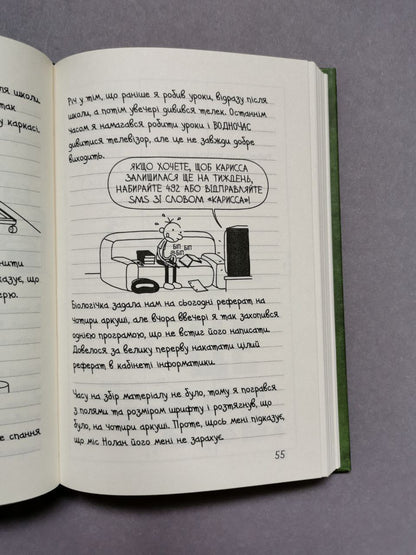 ля школи.
так
у каркасі.
нити
казує, що
ерю.
е спання
Річ у тім, що раніше я робив уроки відразу після
школи, а потім увечері дивився телек. Останнім
часом я намагався робити уроки і ВОДНОЧАС
дивитися телевізор, але це не завжди добре
виходить.
ЯКЩО ХОЧЕТЕ, ЩОБ КАРИССА
ЗАЛИШИЛАСЯ ЩЕ НА ТИЖДЕНЬ,
НАБИРАЙТЕ 492 АБО ВІДПРАВЛЯЙТЕ
SMS ЗІ СЛОВОМ «КАРИССА»!
БІП БІП
БІП
Біологічка задала нам на сьогодні реферат на
чотири аркуші, але вчора ввечері я так захопився
однією програмою, що не встиг його написати.
Довелося за велику перерву накатати цілий
реферат в кабінеті інформатики.
Часу на збір матеріалу не було, тому я погрався
з полями та розміром шрифту і розтягнув, що
було, на чотири аркуші. Проте, щось мені підказує,
що міс Нолан його мені не зарахує.
55